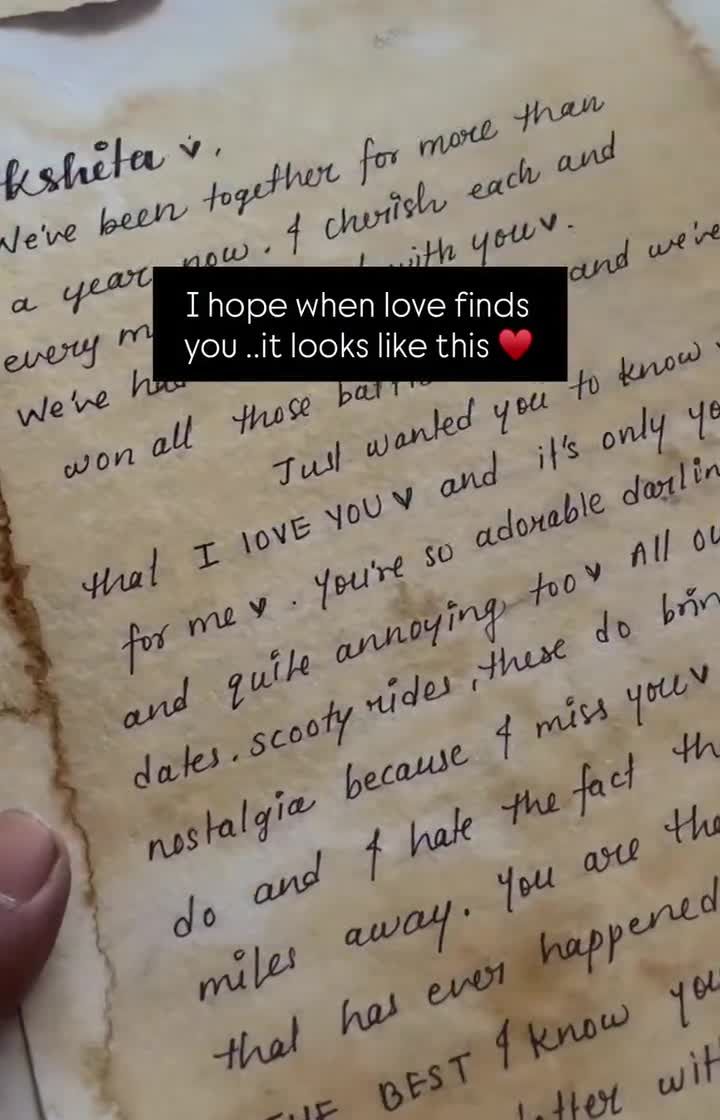 kshita ♥,
We've been together for more than
a year now. I cherish each and
every with you♥.
We've and we've
I hope when love finds
you ..it looks like this ♥️
won all those
Just wanted you to know
that I lOVE YOU ♥ and it's only
for me ♥. You're so adorable
and quite annoying too ♥ All
dates. scooty rides, these do
nostalgia because I miss you♥
do and I hate the fact
miles away. You are the
that has ever happened
BEST I know